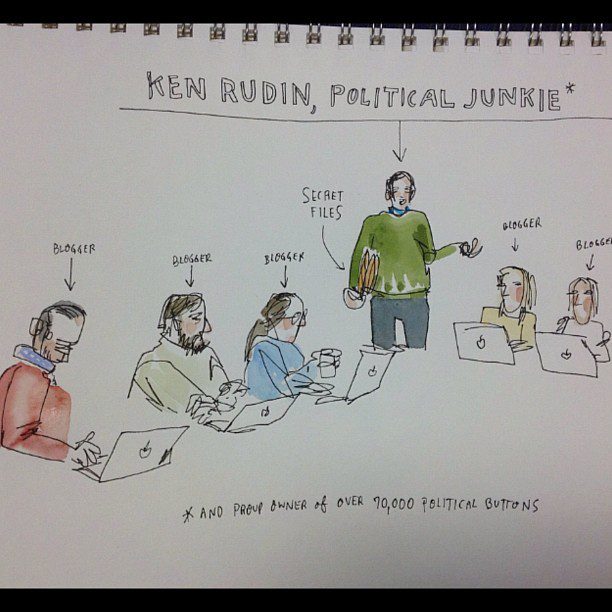 KEN RUDIN, POLITICAL JUNKIE*
SECRET
FILES
BLOGGER
BLOGGER
BLOGGER
BLOGGER
BLOGGER
* AND PROUD OWNER of OVER 70,000 POLITICAL BUTTONS